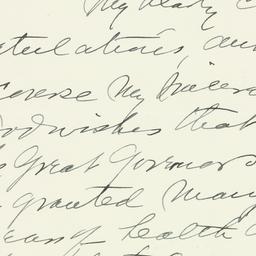 My hearty C
tulations, an
coverse my sincere
odwishes that
Great Governor
granted many
ears of health